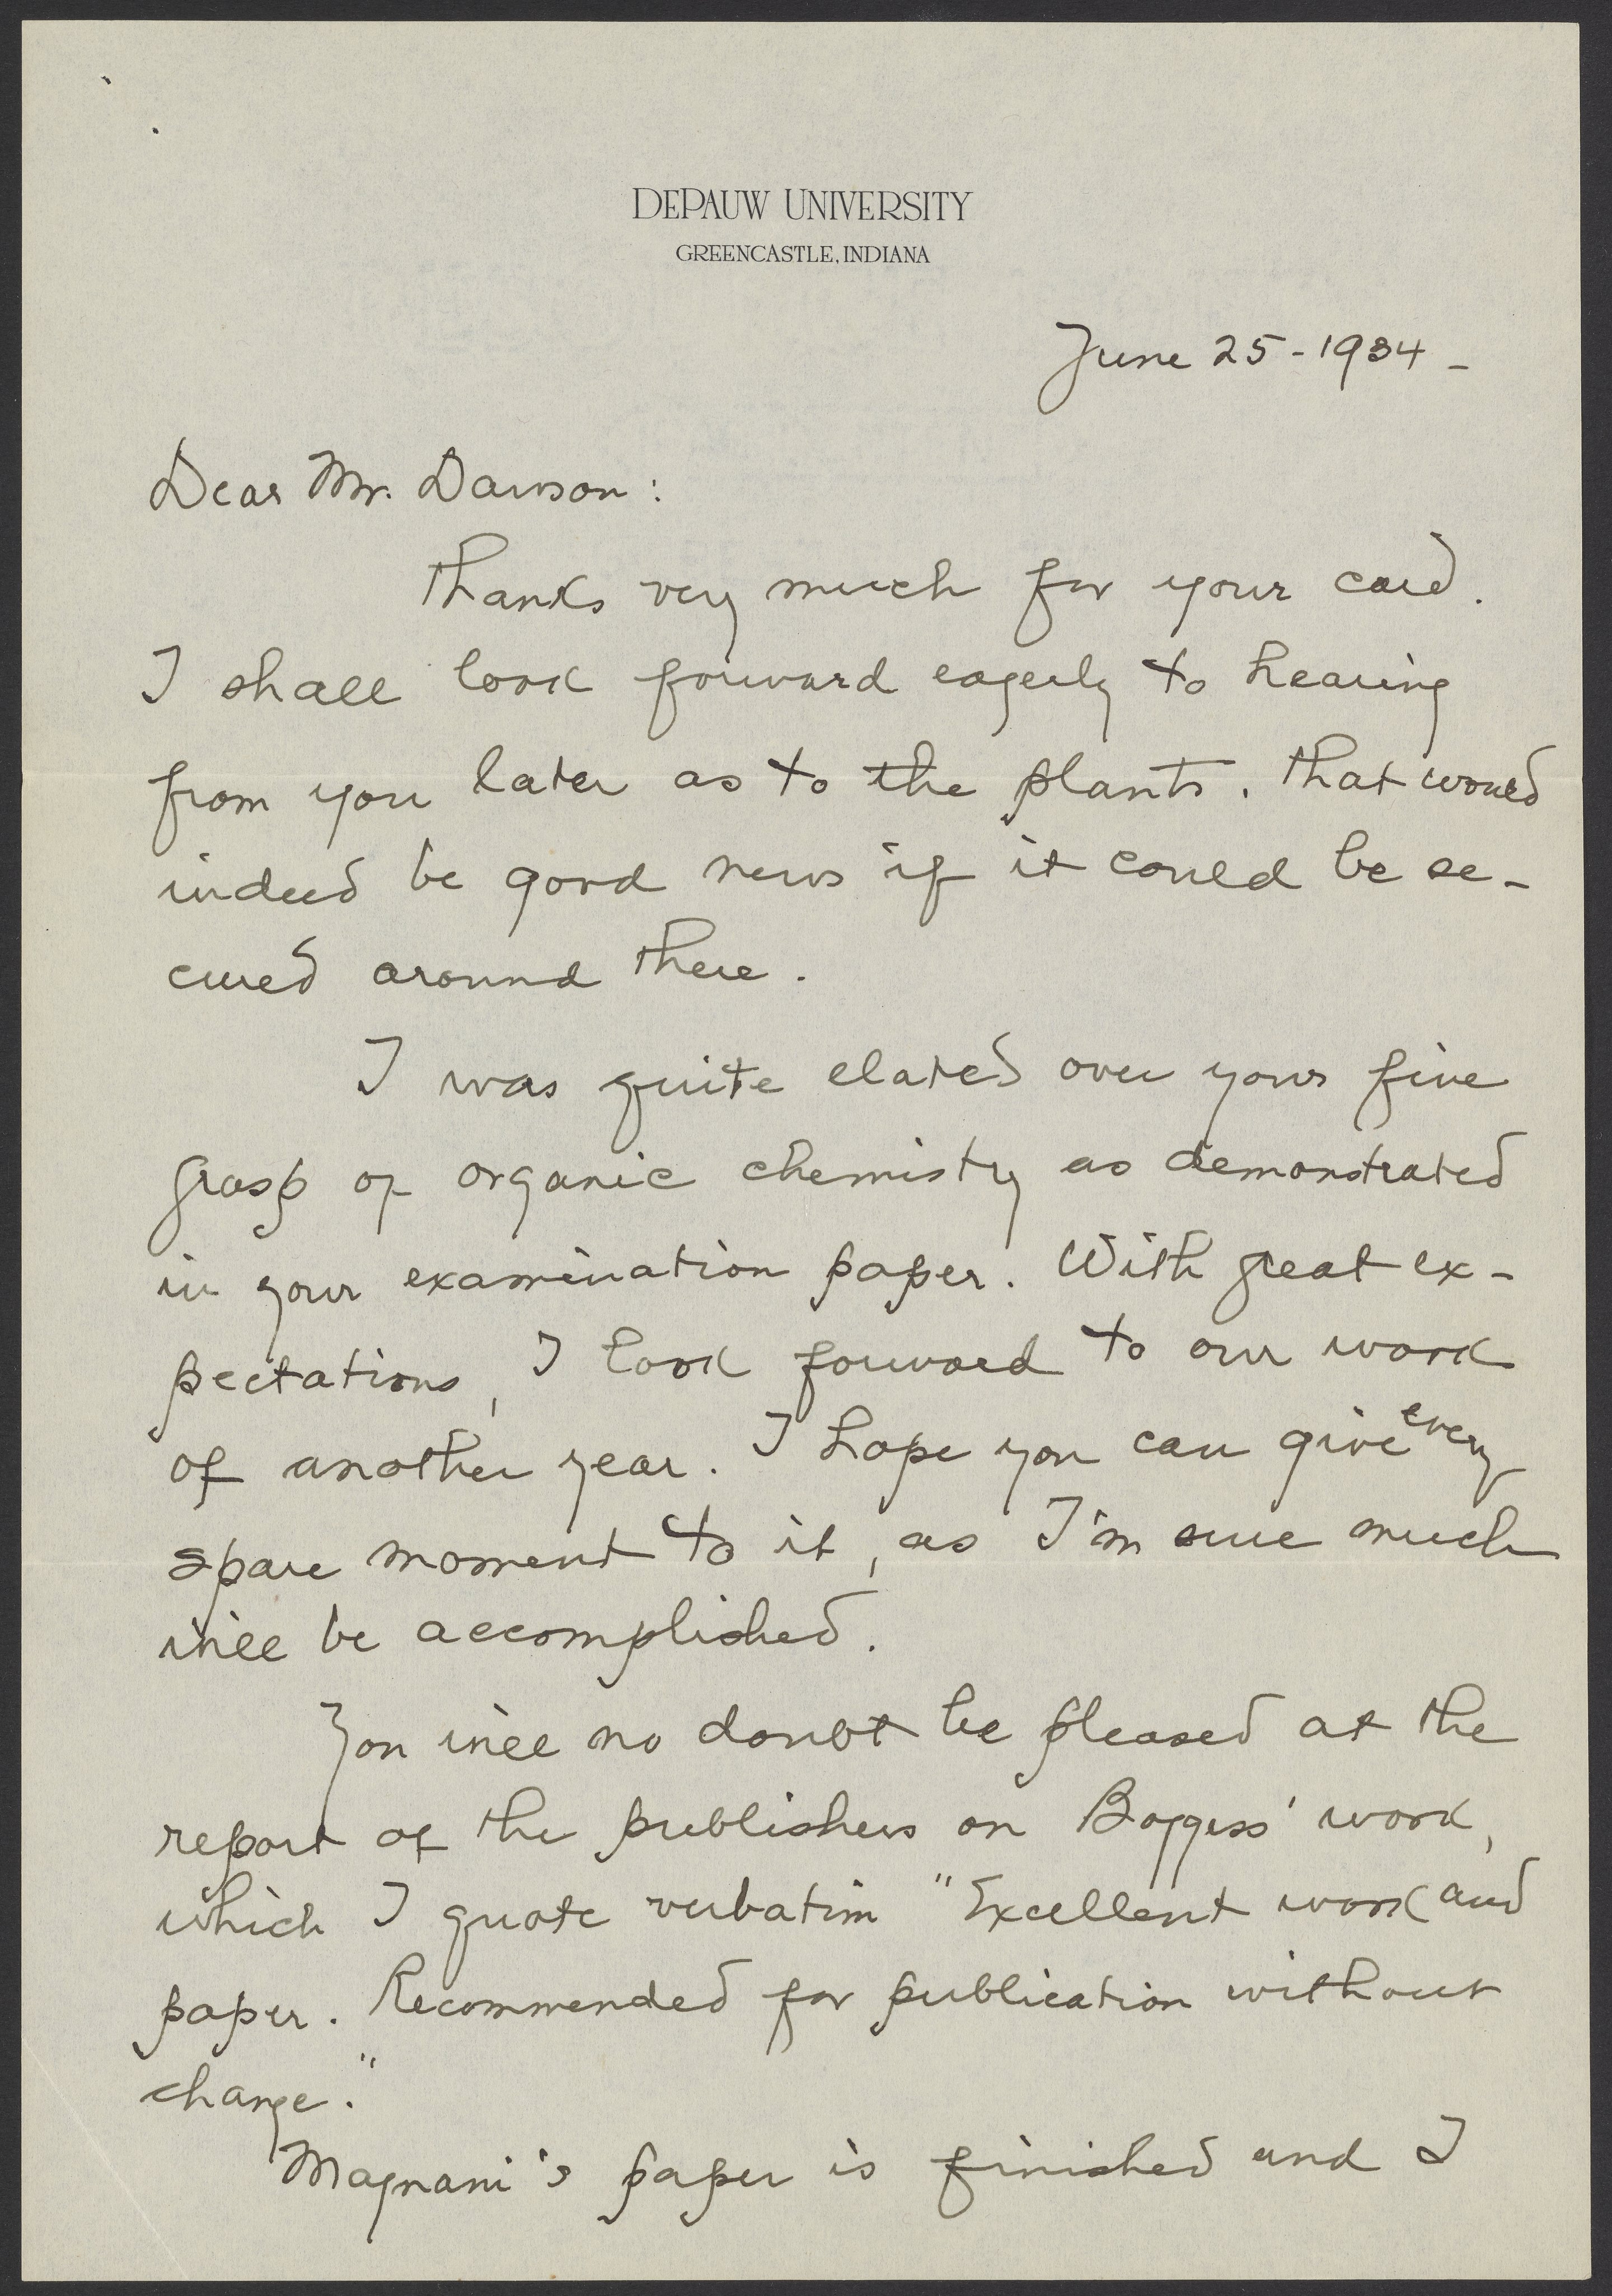 DEPAUW UNIVERSITY
GREENCASTLE, INDIANA
June 25 - 1934 -
Dear Mr. Dawson:
Thanks very much for your card.
I shall look forward eagerly to hearing
from you later as to the plants. That would
indeed be good news if it could be se-
cured around there.
I was quite elated over your fine
grasp of organic chemistry as demonstrated
in your examination paper. With great ex-
pectations, I look forward to our work
of another year. I hope you can give every
spare moment to it, as I'm sure much
will be accomplished.
You will no doubt be pleased at the
report of the publishers on Boggess' work,
which I quote verbatim "Excellent work and
paper. Recommended for publication without
change."
Magnani's paper is finished and I